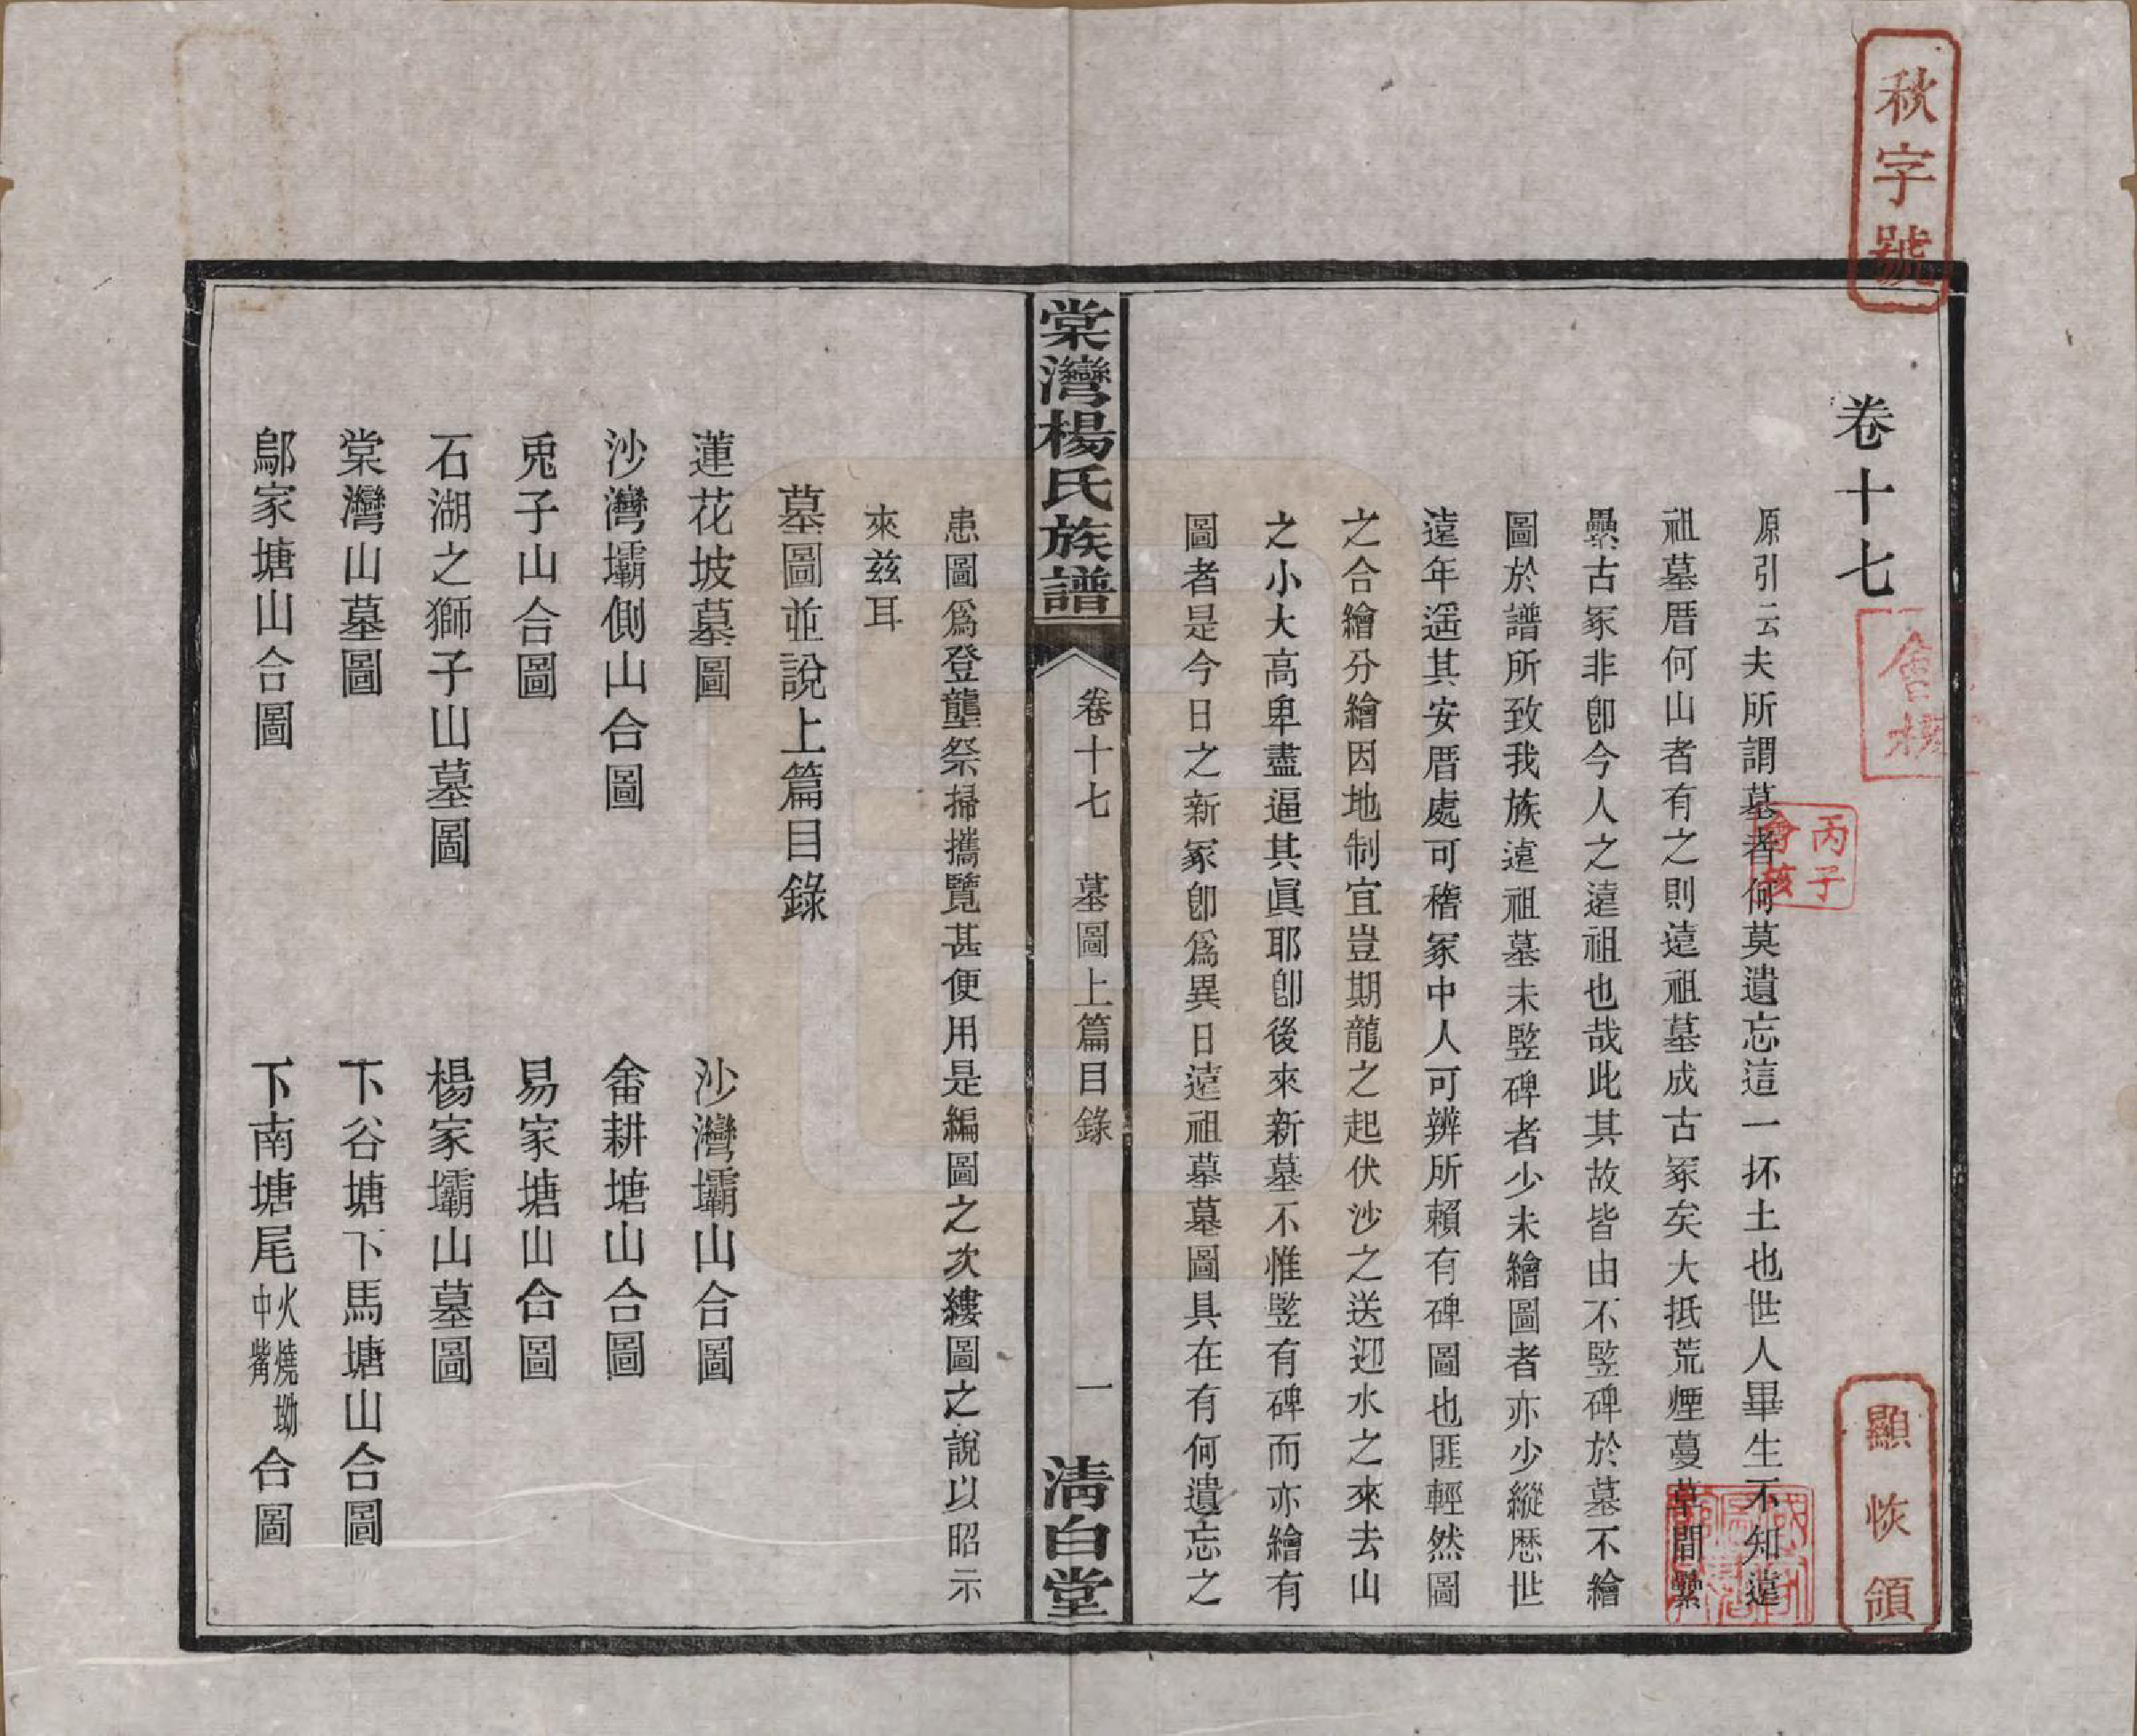 秋字號
卷十七
會核
丙子會核
顯恢領
原引云夫所謂墓者何莫遺忘這一抔土也世人畢生不知遠
祖墓厝何山者有之則遠祖墓成古冢矣大抵荒煙蔓草間纍
纍古冢非卽今人之遠祖也哉此其故皆由不竪碑於墓不繪
圖於譜所致我族遠祖墓未竪碑者少未繪圖者亦少縱歷世
遠年遥其安厝處可稽冢中人可辨所賴有碑圖也匪輕然圖
之合繪分繪因地制宜豈期龍之起伏沙之送迎水之來去山
之小大高卑盡逼其眞耶卽後來新墓不惟竪有碑而亦繪有
圖者是今日之新冢卽爲異日遠祖墓墓圖具在有何遺忘之
棠灣楊氏族譜
卷十七 墓圖上篇目錄 一
清白堂
患圖爲登壟祭掃攜覽甚便用是編圖之次縷圖之說以昭示
來兹耳
墓圖並說上篇目錄
蓮花坡墓圖 沙灣壩山合圖
沙灣壩側山合圖 畬耕塘山合圖
兎子山合圖 易家塘山合圖
石湖之獅子山墓圖 楊家壩山墓圖
棠灣山墓圖 下谷塘下馬塘山合圖
鄔家塘山合圖 下南塘尾火燒坳中嘴合圖